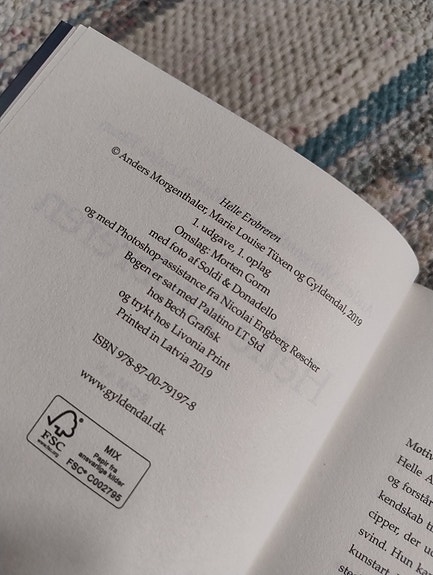 Helle Erobreren
© Anders Morgenthaler, Marie Louise Tüxen og Gyldendal, 2019
1. udgave, 1. oplag
Omslag: Morten Gorm
med foto af Soldi & Donadello
og med Photoshop-assistance fra Nicolai Engberg Røscher
Bogen er sat med Palatino LT Std
hos Bech Grafisk
og trykt hos Livonia Print
Printed in Latvia 2019
ISBN 978-87-00-79197-8
www.gyldendal.dk
FSC
www.fsc.org
MIX
Papir fra
ansvarlige kilder
FSC® C002795
Helle A
og forstår
kendskab ti
cipper, der
svind. Hun ka
kunstart.